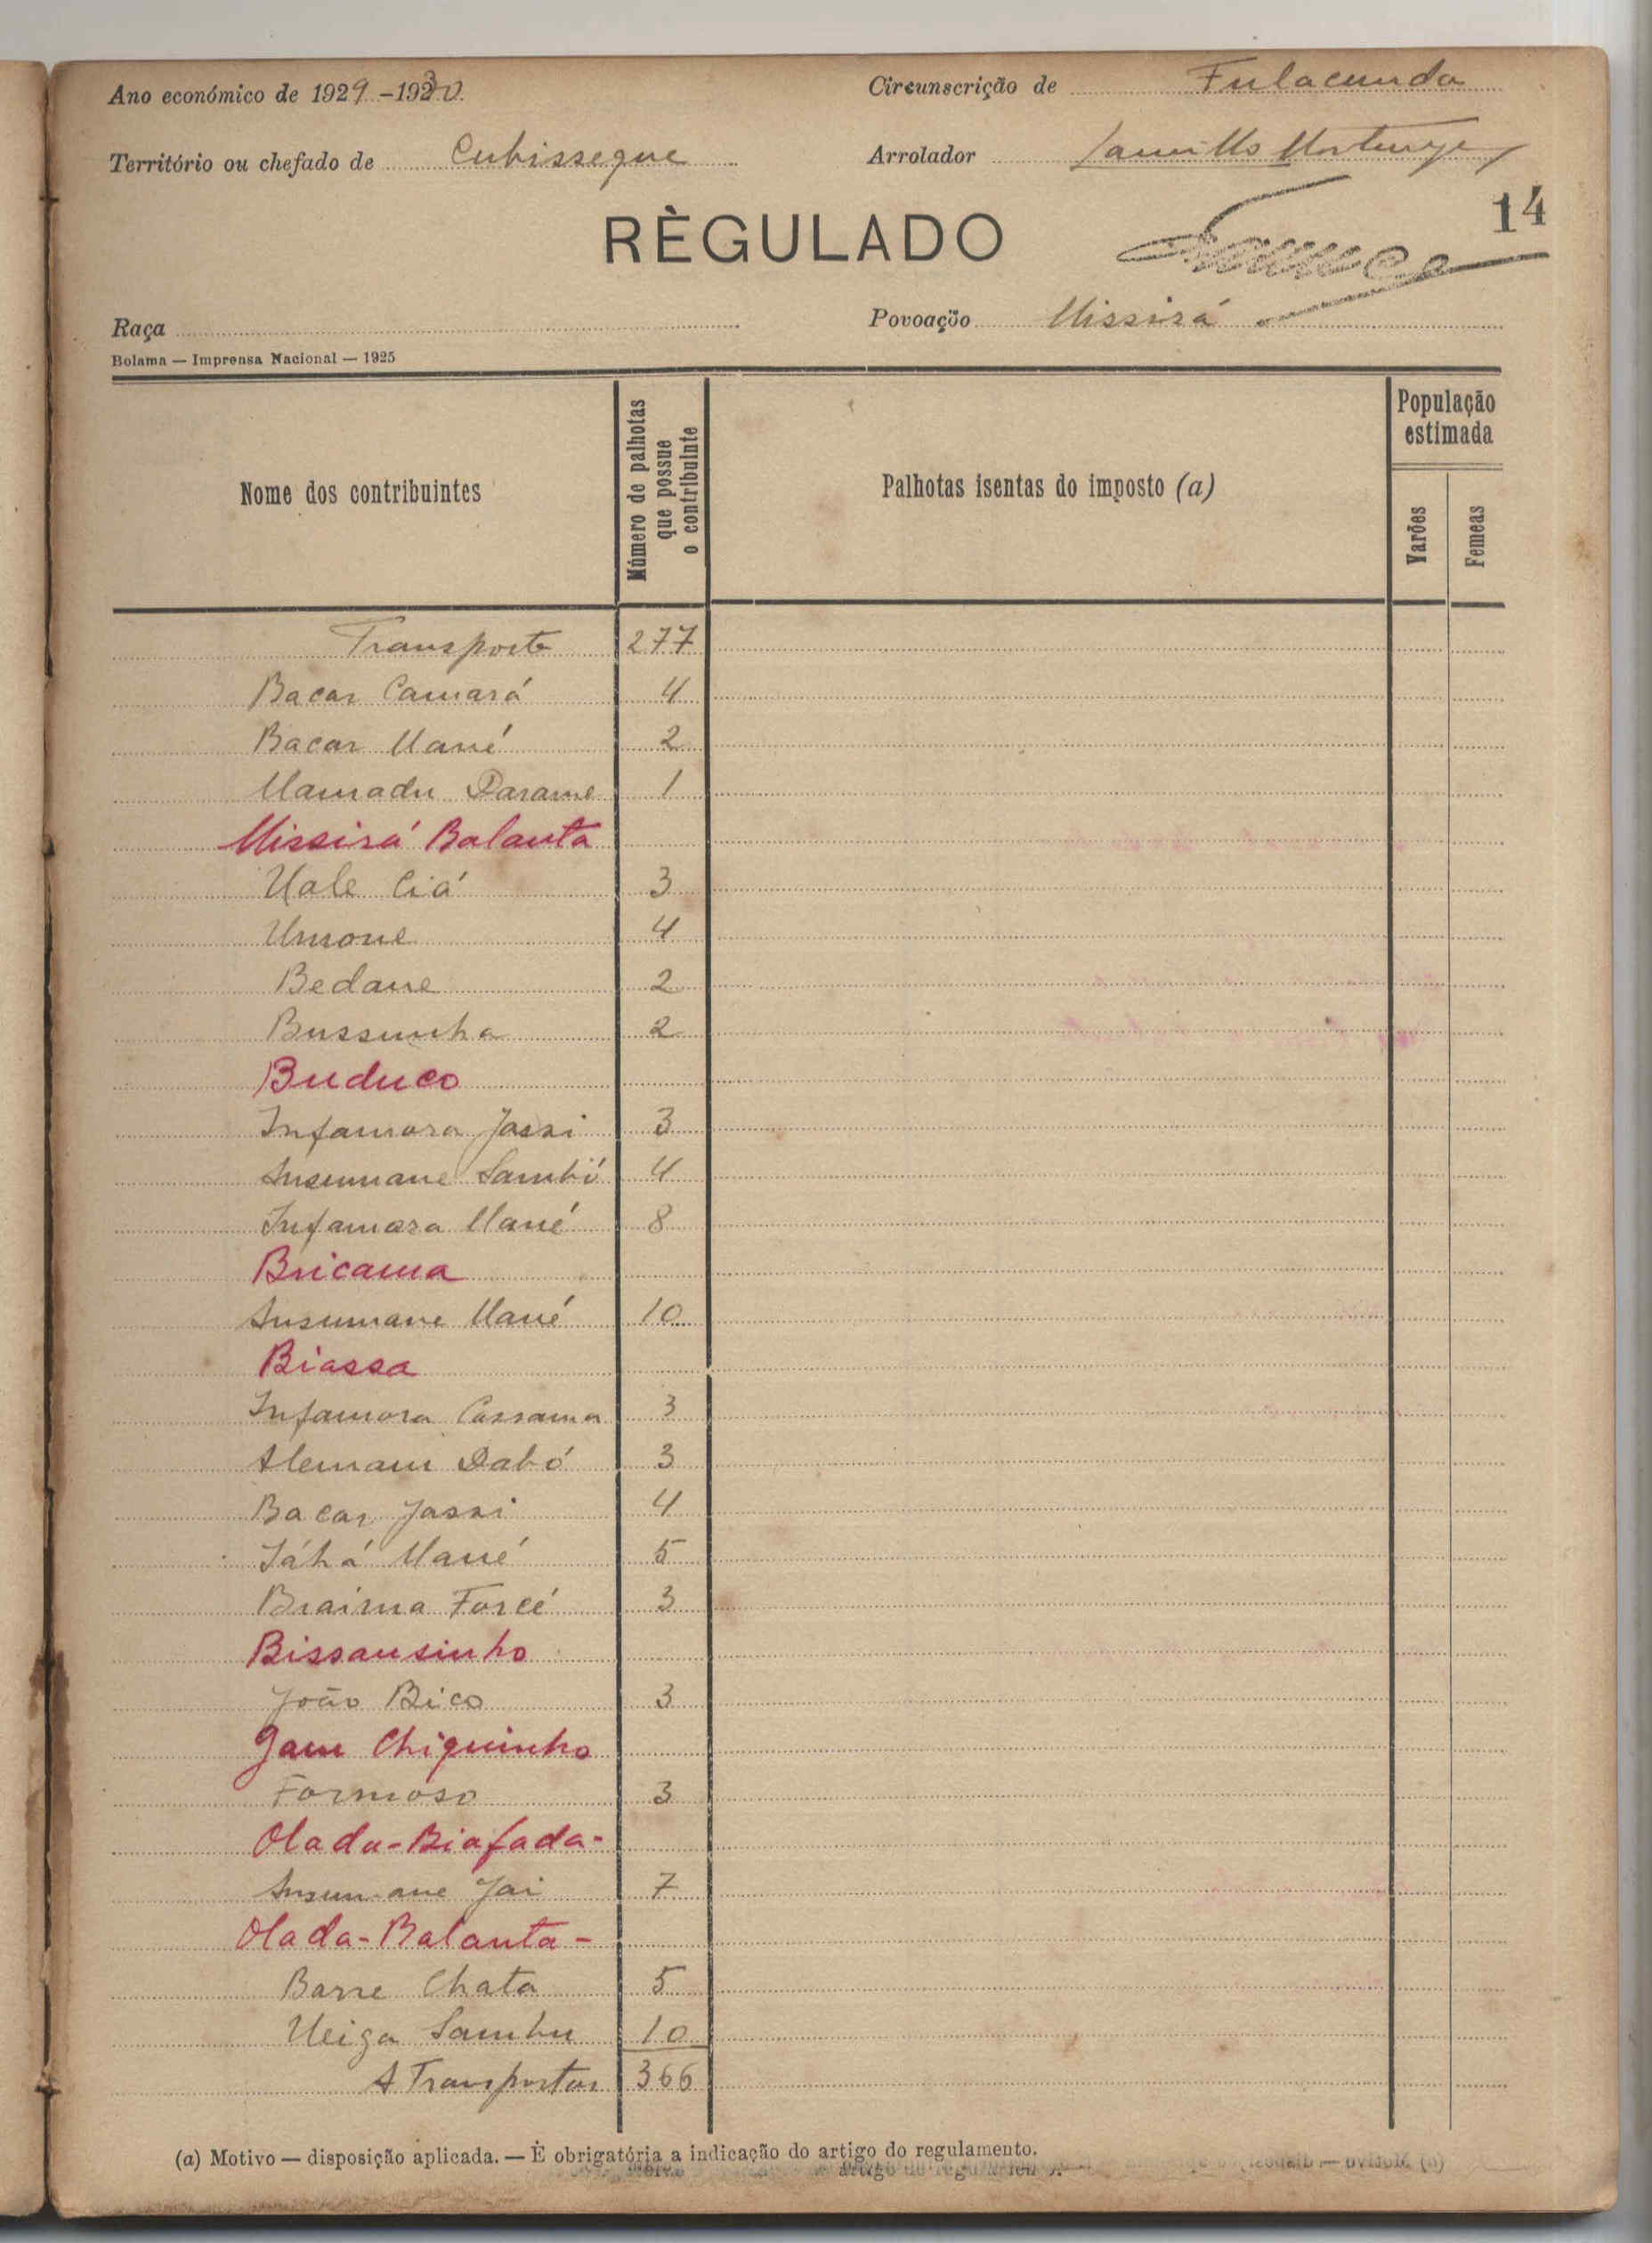 Ano económico de 1929-1930 Circunscrição de Fulacunda
Território ou chefado de Cubisseque Arrolador
14
RÈGULADO
Raça Povoação Missirá
Bolama — Imprensa Nacional — 1925
Nome dos contribuintes
Número de palhotas que possue o contribuinte
Palhotas isentas do imposto (a)
População estimada
Varões
Femeas
Transporte 277
Bacar Camará 4
Bacar Mané 2
Mamadu Darame 1
Missirá Balanta
Uale Ciá 3
Umone 4
Bedane 2
Bussunha 2
Buduco
Infamara Jassi 3
Insumane Sambú 4
Infamara Mané 8
Bricama
Insumane Mané 10
Biassa
Infamara Cassama 3
Alemani Dabó 3
Bacar Jassi 4
Jáhá Mané 5
Braima Forcé 3
Bissausinho
João Bico 3
Gam Chiquinho
Formoso 3
Olada-Biafada-
Insumane Jai 7
Olada-Balanta-
Barre Chata 5
Ueiga Sambu 10
A Transportar 366
(a) Motivo — disposição aplicada. — É obrigatória a indicação do artigo do regulamento.